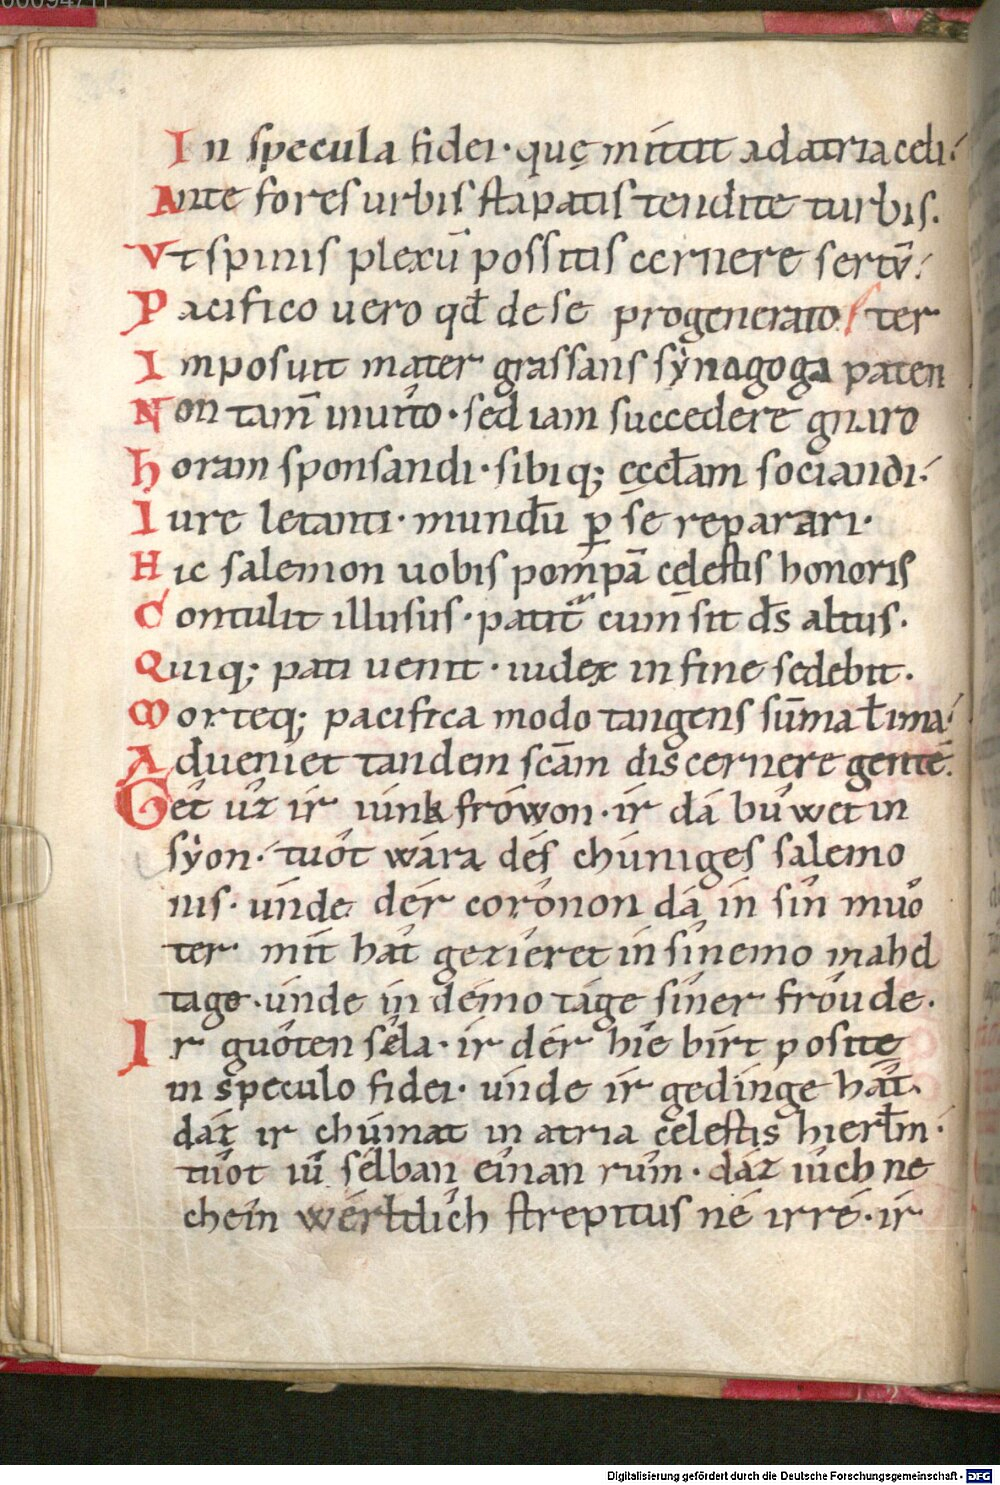 In specula fidei · quę mittit ad atria celi ·
Ante fores urbis stipatis tendite turbis.
Vt spinis plexū possitis cernere sertū ·
Pacifico uero qđ de se progenerato / ter
Imposuit mater grassans sẏnagoga paten
Non tam̄ inuito · sed iam succedere gnaro
horam sponsandi · sibiq; ęccl̄am sociandi ·
Iure letanti · mundū ꝑ se reparari ·
Hic salemon uobis pompā celestis honoris
Contulit illusus · patit᷒ cum sit d̄s altus ·
Quiq; pati uenit · iudex in fine sedebit ·
Morteq; pacifica modo tangens sūma t̄ ima ·
Adueniet tandem scām discernere gentē.
Gét ûz ir iúnkfrówon · ir dá búwet in
sẏon · tuót wára dés chúniges salemo
nis · únde dér corónon dá ín sín muó
ter mít hát gezieret in sínemo mahel
tage · únde in démo táge síner fróude ·
Ir guóten sêla · ír dér híe bírt posite
in speculo fidei · únde ír gedínge hât
dáz ir chúmat in atria cęlestis hierl̄m ·
tuót iú sélban eínan rúm · dáz iúch ne
cheín wérltlích strepitus né írre · ír
Digitalisierung gefördert durch die Deutsche Forschungsgemeinschaft - DFG